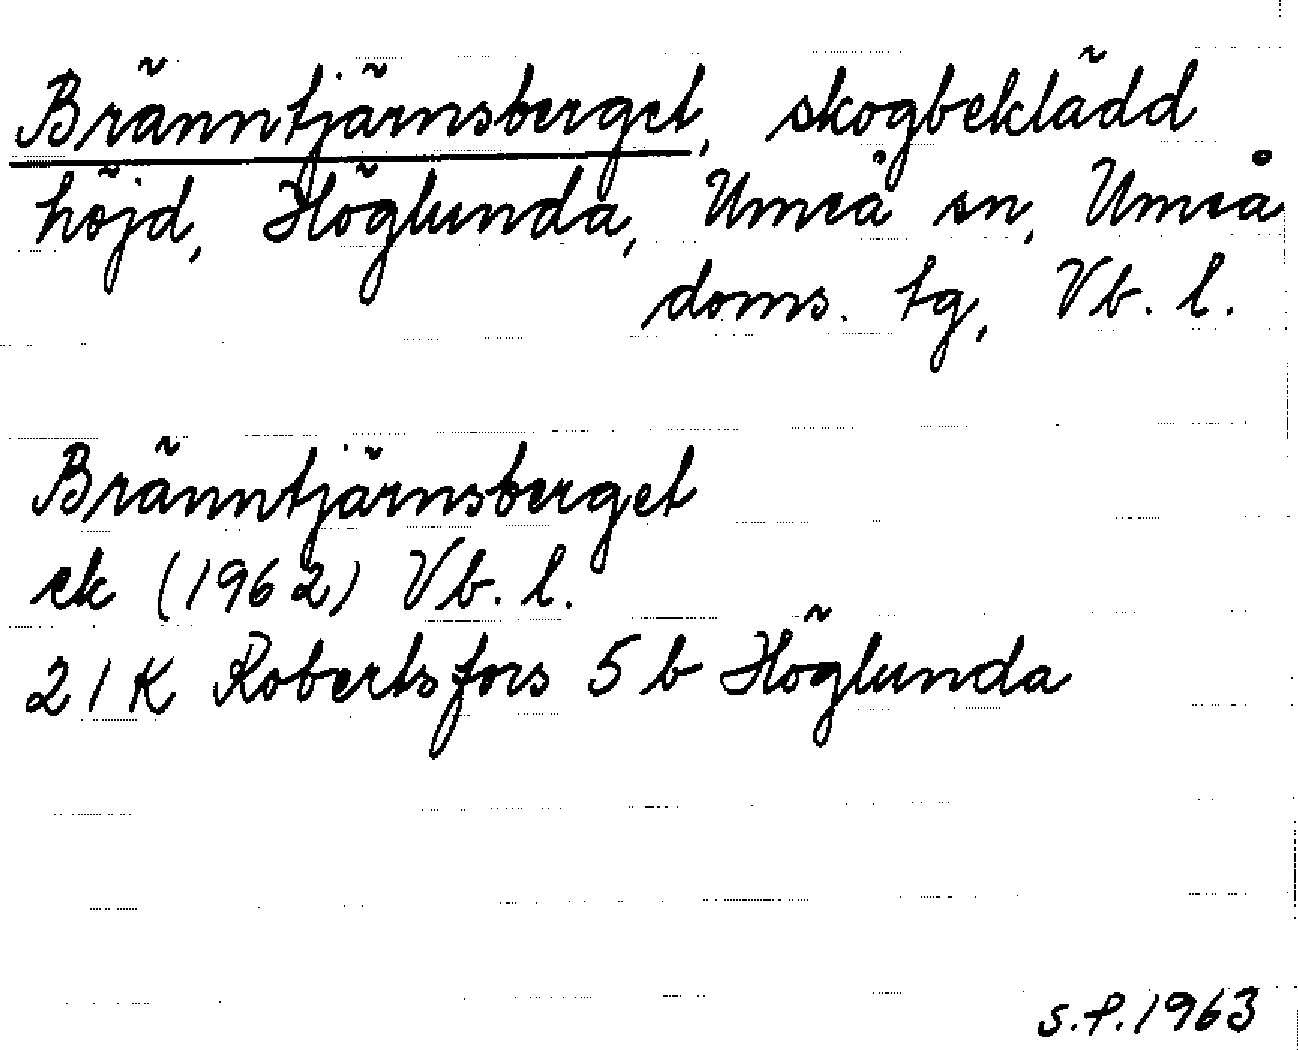 Bränntjärnsberget, skogbeklädd
höjd, Höglunda, Umeå sn, Umeå
doms. tg, Vb. l.
Bränntjärnsberget
ek (1962) Vb. l.
21 K Robertsfors 5 b Höglunda
S.P. 1963